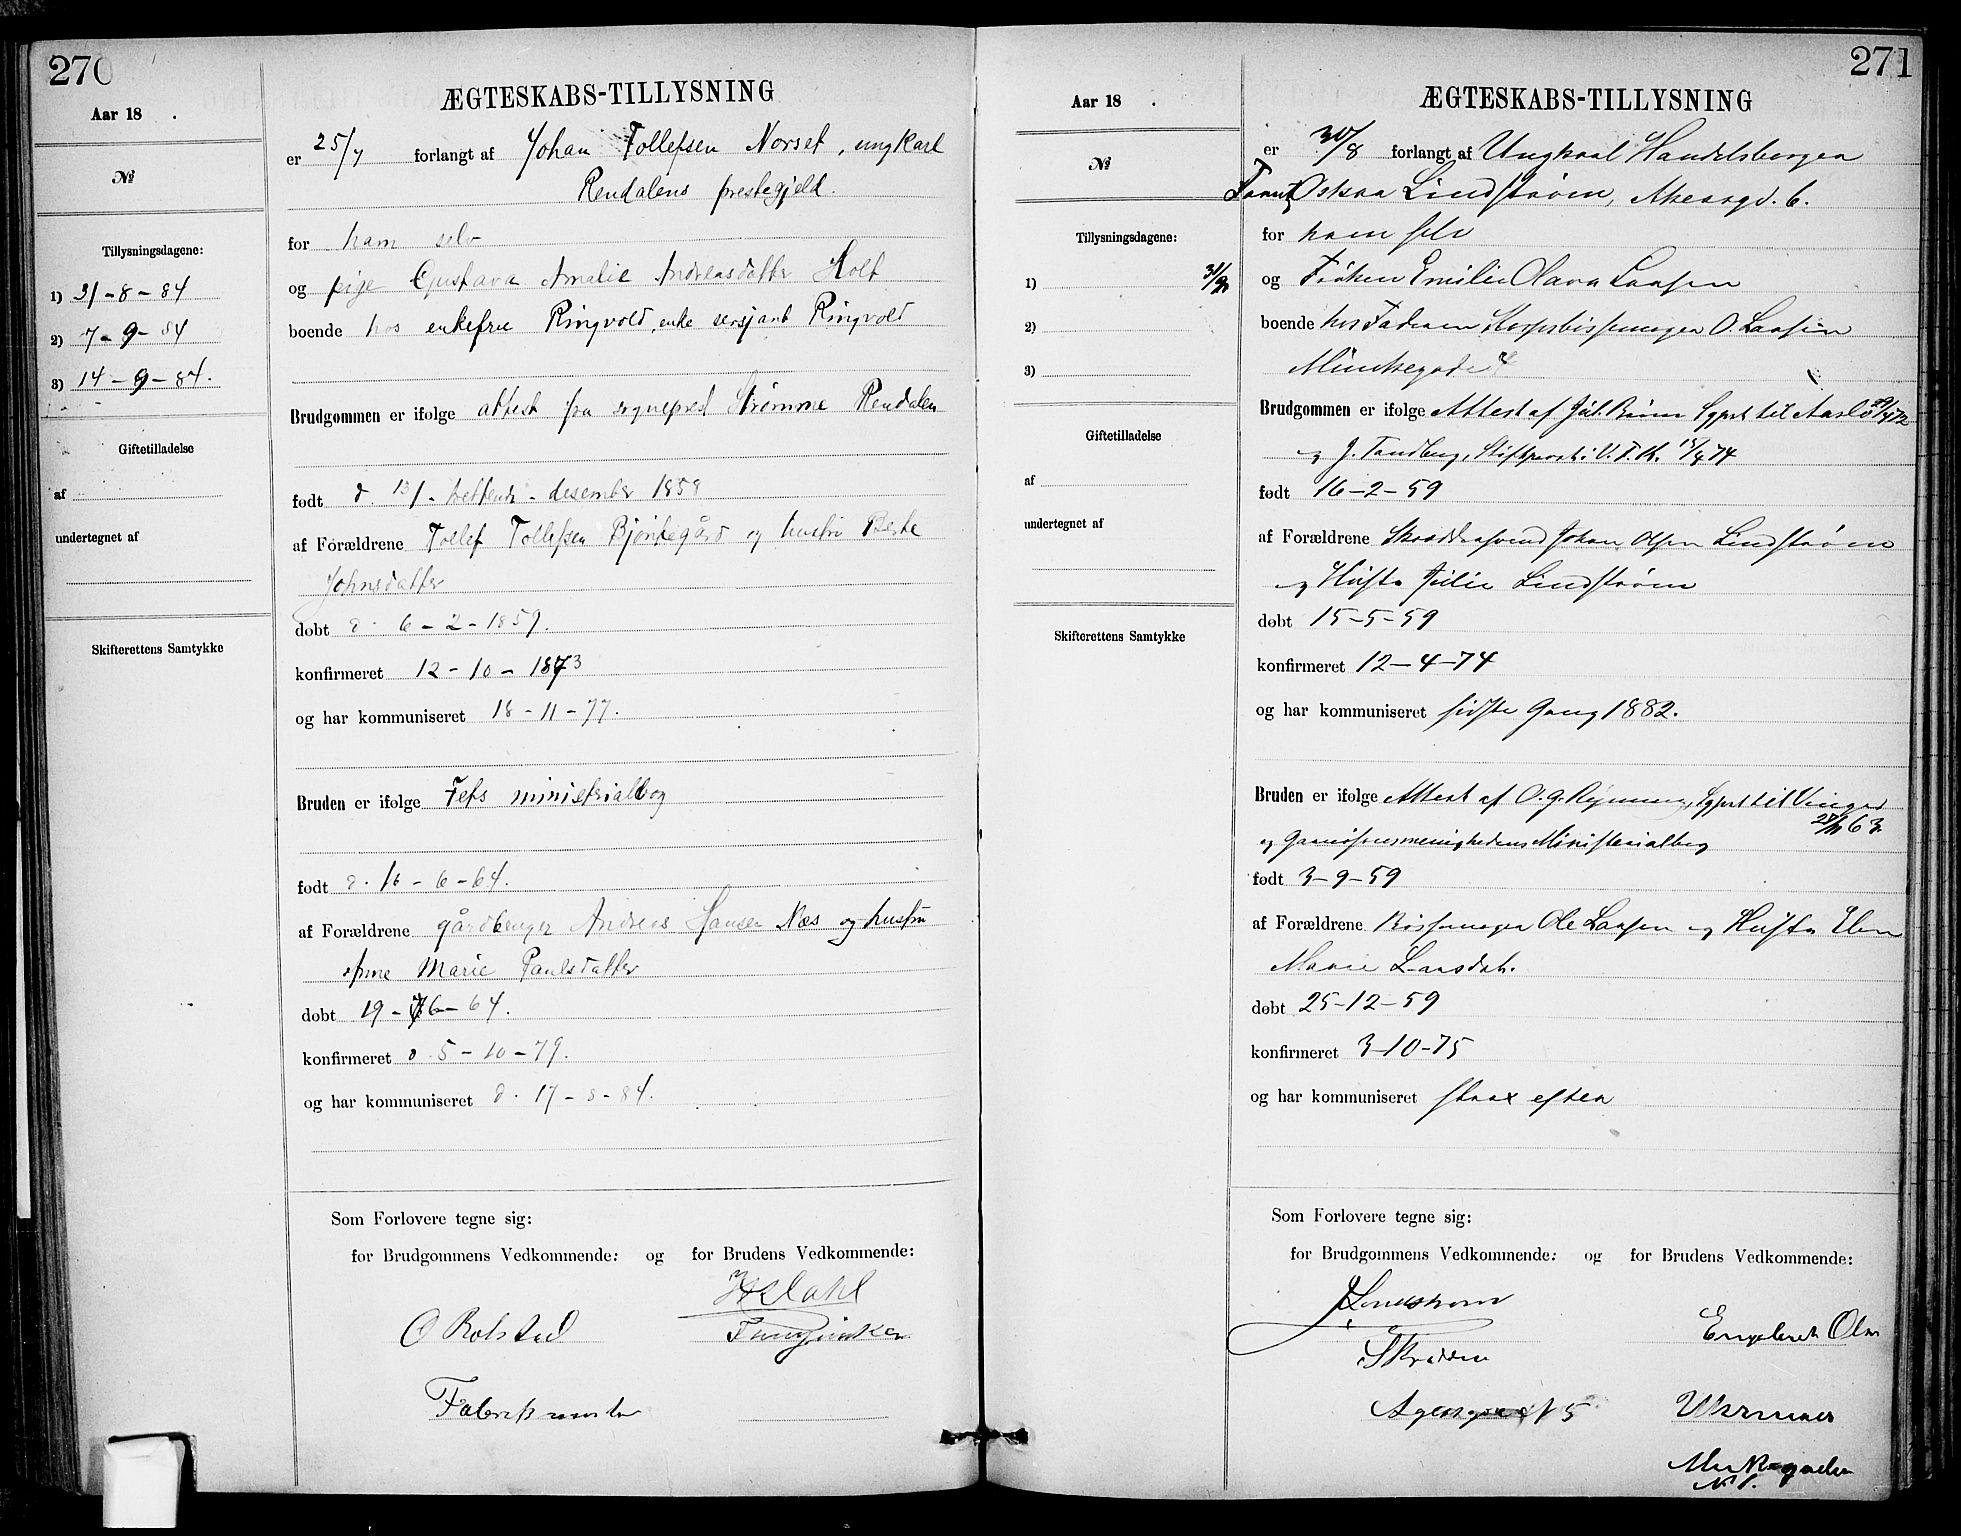 270
ÆGTESKABS-TILLYSNING
Aar 18 .
№
Tillysningsdagene:
1) 31-8-84
2) 7-9-84
3) 14-9-84.
Giftetilladelse
af
undertegnet af
Skifterettens Samtykke
er 25/7 forlangt af Johan Tollefsen Norset, ungkarl
Rendalens prestegjeld.
for ham selv
og pige Gustava Amalie Andreasdatter Holt
boende hos enkefru Ringvold, enke sersjant Ringvold
Brudgommen er ifølge attest fra sogneprest Strömme Rendalen
født d. 13/- trettende - desember 1858
af Forældrene Tollef Tollefsen Bjontegård og hustru Berte
Johnsdatter
døbt d. 6-2-1859.
konfirmeret 12-10-1873
og har kommuniseret 18-11-77.
Bruden er ifølge Fets ministrialbog
født d. 16-6-64.
af Forældrene gårdbruger Andreas Hansen Næs og hustru
Marie Paulsdatter
døbt 19-6-64.
konfirmeret d. 5-10-79.
og har kommuniseret d. 17-8-84.
Som Forlovere tegne sig:
for Brudgommens Vedkommende: og for Brudens Vedkommende:
O Rolstad
Dahl
271
ÆGTESKABS-TILLYSNING
Aar 18 .
№
Tillysningsdagene:
1) 31/8
2)
3)
Giftetilladelse
af
undertegnet af
Skifterettens Samtykke
er 30/8 forlangt af Ungkarl Handelsborger
Frantz Oskar Lindstrøm, Akersgd. 6.
for ham selv
og Frøken Emilie Olava Larsen
boende hos Faderen Korpsbøssemager O. Larsen
Munkegade 4
Brudgommen er ifølge Attest af Jul. Riis Sgprst til Aaslo
og J. Tandberg, Stiftsprovst i V. F. K. 15/4 74
født 16-2-59
af Forældrene Skræddersvend Johan Olsen Lindstrøm
og Hustr Julie Lindstrøm
døbt 15-5-59
konfirmeret 12-4-74
og har kommuniseret sidste Gang 1882.
Bruden er ifølge Attest af O. G. Rynning, Sgprst til Vinger
63
og Garnisonsmenighedens Ministerialbog
født 3-9-59
af Forældrene Bøssemager Ole Larsen og Hustr Elen
Marie Larsdat.
døbt 25-12-59
konfirmeret 3-10-75
og har kommuniseret strax efter
Som Forlovere tegne sig:
for Brudgommens Vedkommende: og for Brudens Vedkommende:
J Lindstrøm
Skræder
N 5
Engebret Olsen
Uhrmager
Munkegaden
N 1.